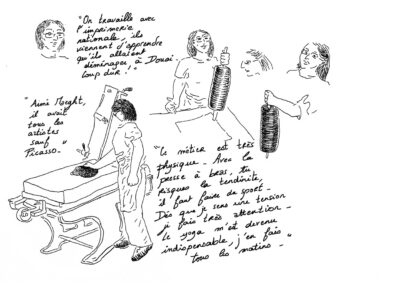 "On travaille avec
l'imprimerie
nationale, ils
viennent d'apprendre
qu'ils allaient
déménager à Douai
coup dur !"
"Aimé Maeght,
il avait
tous les
artistes
sauf "
Picasso_
"Le métier est très
physique_ Avec la
presse à bras, tu
risques la tendinite,
il faut faire du sport_
Dès que je sens une tension
je fais très attention_
Le yoga m'est devenu
indispensable, j'en fais
tous les matins_ "